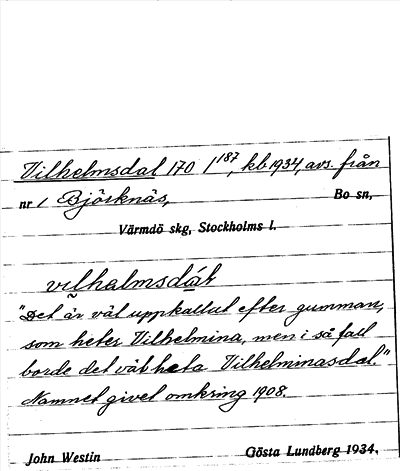 Vilhelmsdal 170 1/187, kb. 1934, avs. från
nr 1 Björknäs, Bo sn,
Värmdö skg, Stockholms l.
vilhalmsdál
"Det är väl uppkallat efter gumman,
som heter Vilhelmina, men i så fall
borde det väl heta Vilhelminasdal."
Namnet givet omkring 1908.
John Westin Gösta Lundberg 1934.